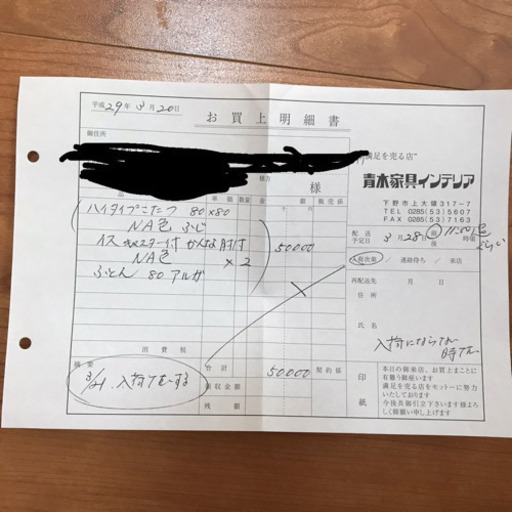 平成29年 3月 20日
お買上明細書
御住所
様方
様
満足を売る店"
青木家具インテリア
下野市上大領317-7
TEL 0285(53)5607
FAX 0285(53)7163
品
単価 数量 金 額
ハイタイプこたつ 80×80
NA色
イス キャスター付 肘付
NA色 ×2
50000
ふとん 80 アルガ
配送予定日 3月28日 前 後 11:00 時頃
入荷次第 / 連絡待ち / 来店
再配送先 月 日
住所
氏名
消費税
摘要
3/21
合計 50000 契約様
領収金額
残額
印紙
本日の御来店、お買上まことに
有難う御座います
満足を売る店をモットーに努力
いたしております
今後共御引立下さいます様よろ
しく御願い申し上げます